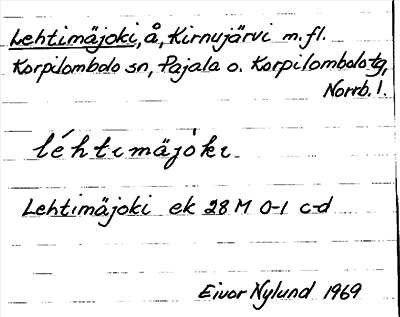 Lehtimäjoki, å, Kirnujärvi m.fl.
Korpilombolo sn, Pajala o. Korpilombolo tg,
Norrb. l.
léhtimäjòki
Lehtimäjoki ek 28 M 0-1 c-d
Eivor Nylund 1969